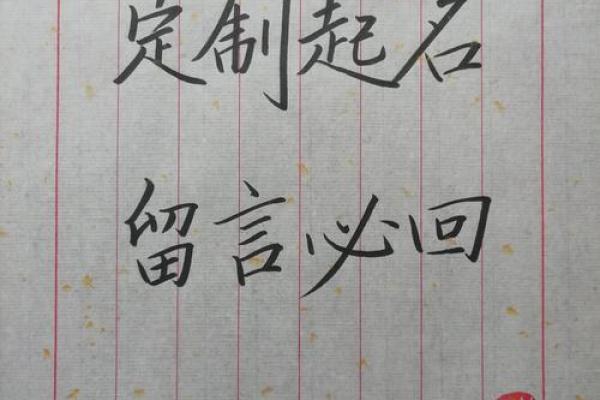 定制起名
留言必回